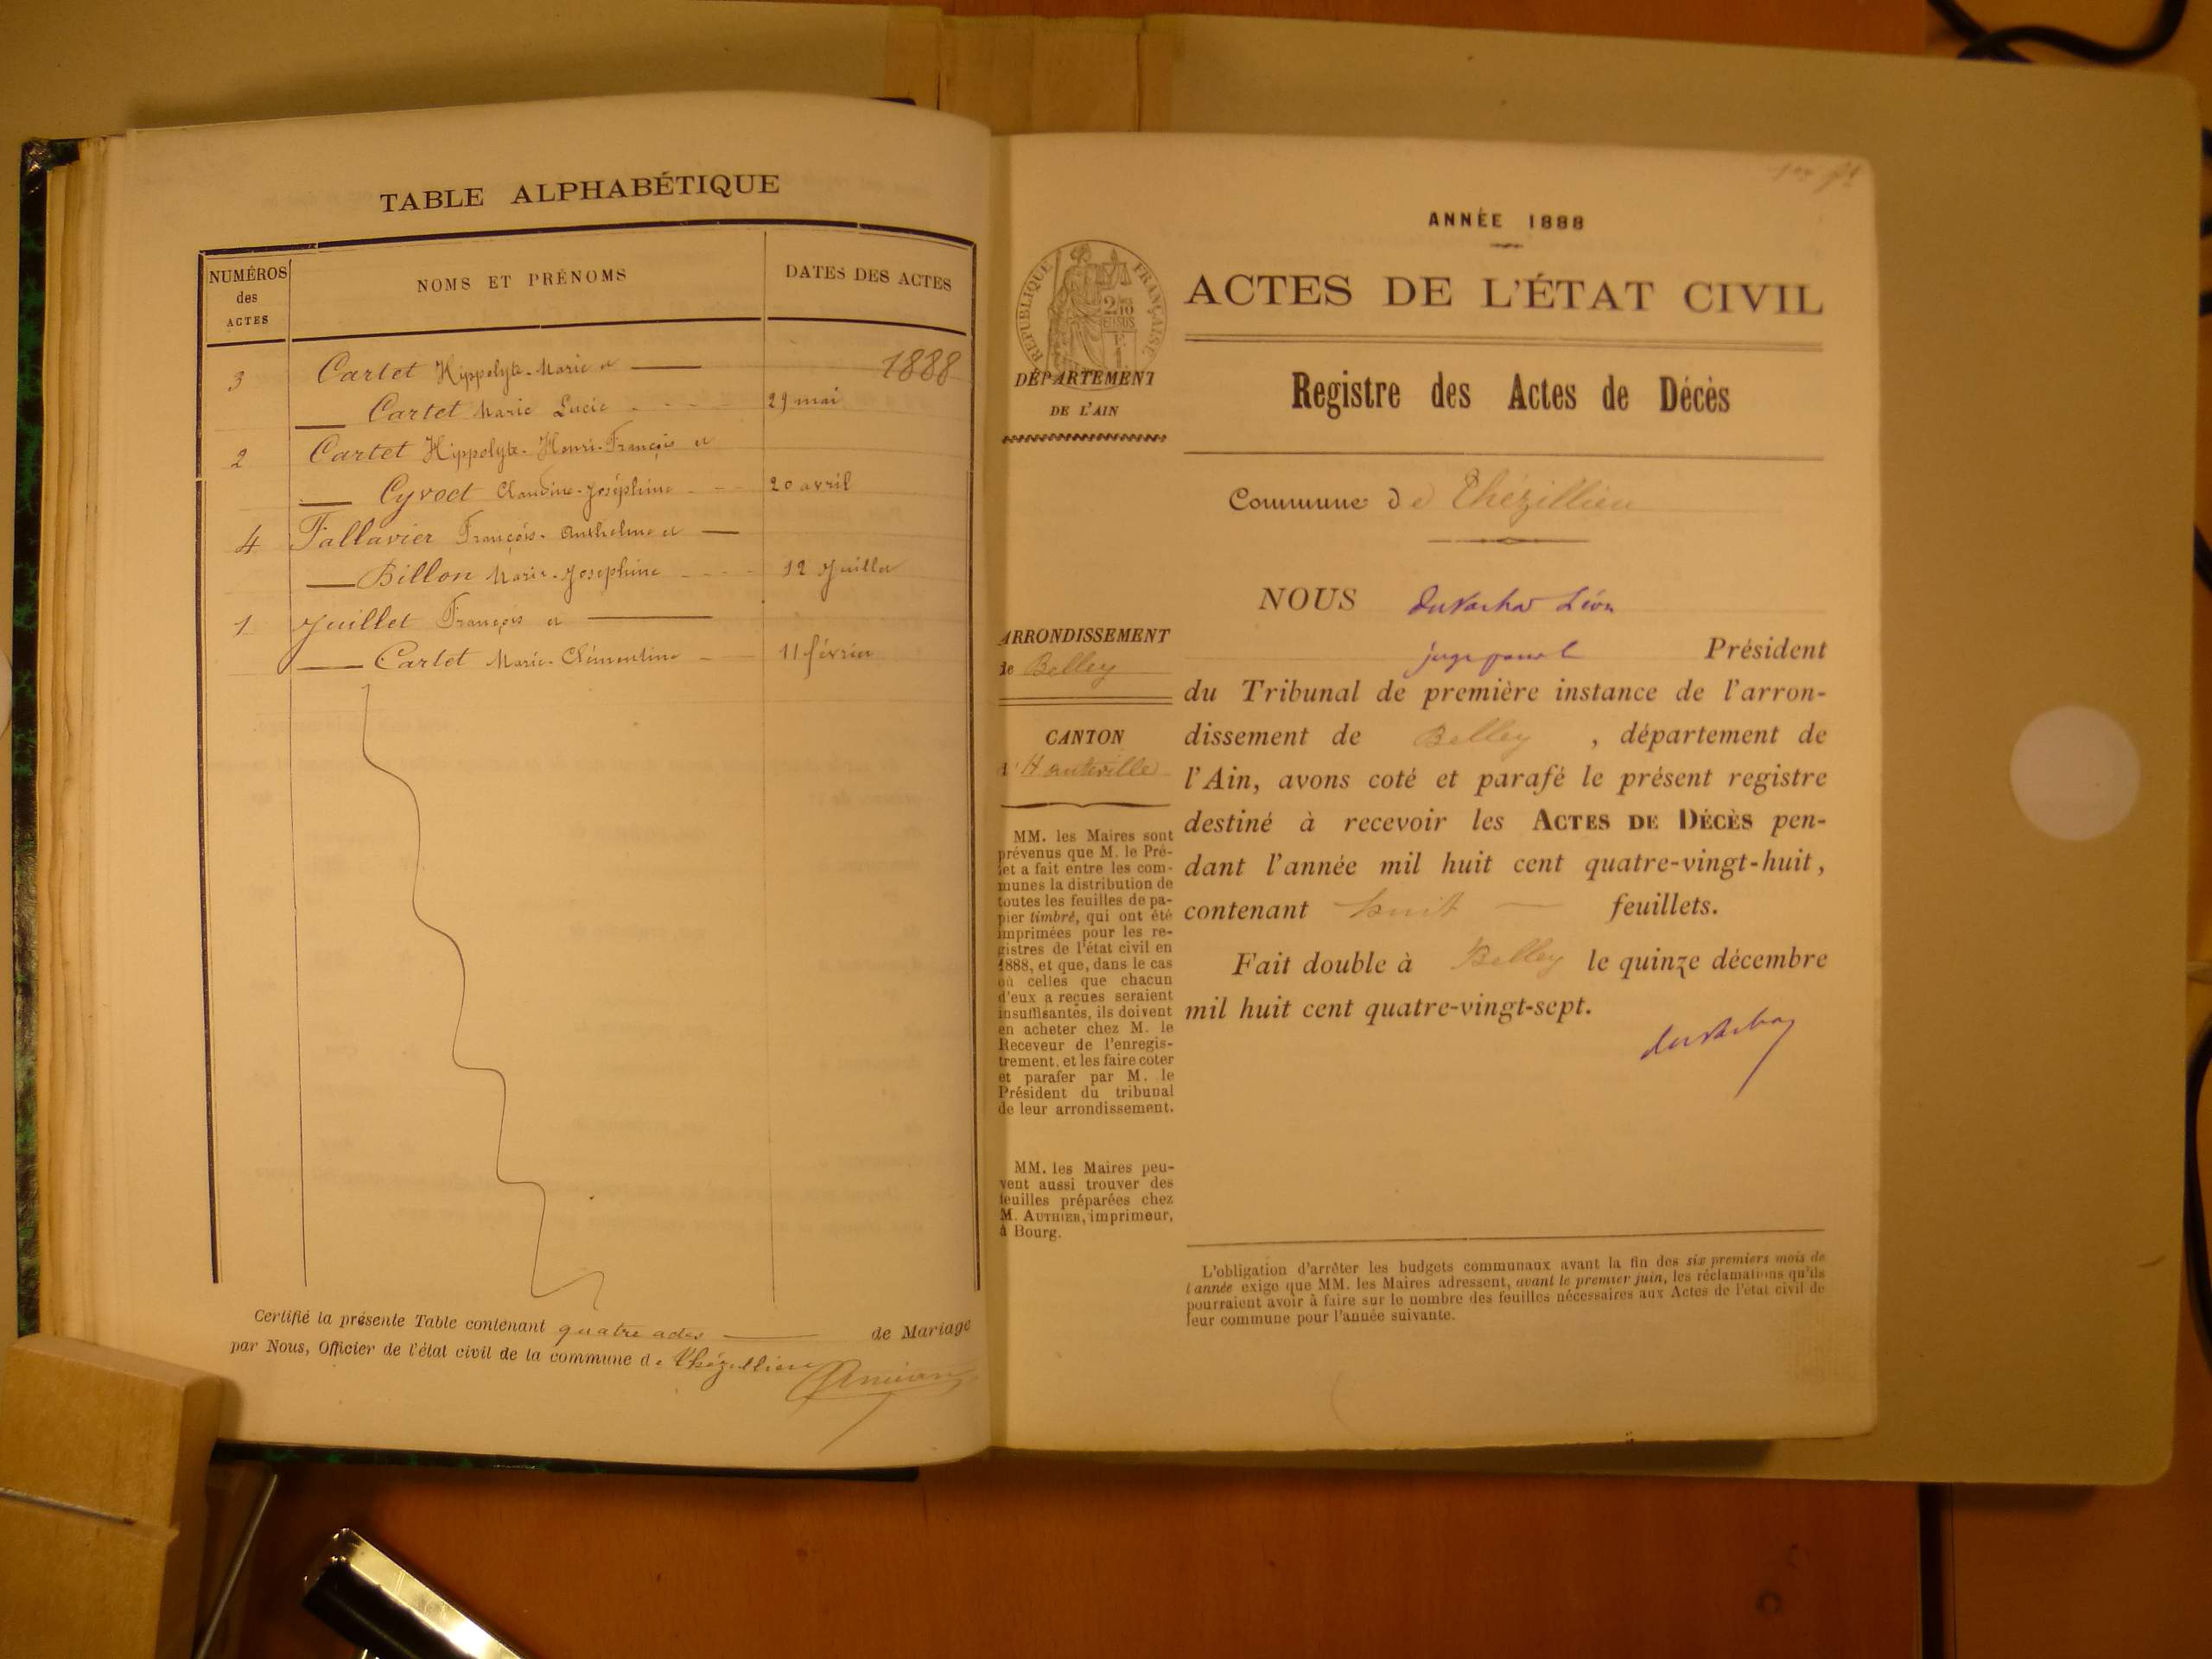 TABLE ALPHABÉTIQUE
NUMÉROS des ACTES
NOMS ET PRÉNOMS
DATES DES ACTES
1888
3 Cartet Hippolyte-Marie et
Cartet Marie Lucie 29 mai
2 Cartet Hippolyte-Henri-François et
Cyvoct Claudine-Joséphine 20 avril
4 Fallavier François-Anthelme et
Billon Marie-Josephine 12 Juillet
1 Juillet François et
Cartet Marie-Clémentine 11 février
Certifié la présente Table contenant quatre actes de Mariage
par Nous, Officier de l'état civil de la commune de Thézillieu
ANNÉE 1888
ACTES DE L'ÉTAT CIVIL
Registre des Actes de Décès
Commune de Thézillieu
NOUS Léon
Président
du Tribunal de première instance de l'arron-
dissement de Belley, département de
l'Ain, avons coté et parafé le présent registre
destiné à recevoir les ACTES DE DÉCÈS pen-
dant l'année mil huit cent quatre-vingt-huit,
contenant huit feuillets.
Fait double à Belley le quinze décembre
mil huit cent quatre-vingt-sept.
RÉPUBLIQUE FRANÇAISE
DÉPARTEMENT
DE L'AIN
ARRONDISSEMENT
de Belley
CANTON
d'Hauteville
MM. les Maires sont
prévenus que M. le Pré-
fet a fait entre les com-
munes la distribution de
toutes les feuilles de pa-
pier timbré, qui ont été
imprimées pour les re-
gistres de l'état civil en
1888, et que, dans le cas
où celles que chacun
d'eux a reçues seraient
insuffisantes, ils doivent
en acheter chez M. le
Receveur de l'enregis-
trement, et les faire coter
et parafer par M. le
Président du tribunal
de leur arrondissement.
MM. les Maires peu-
vent aussi trouver des
feuilles préparées chez
M. AUTHIER, imprimeur,
à Bourg.
L'obligation d'arrêter les budgets communaux avant la fin des six premiers mois de
l'année exige que MM. les Maires adressent, avant le premier juin, les réclamations qu'ils
pourraient avoir à faire sur le nombre des feuilles nécessaires aux Actes de l'état civil de
leur commune pour l'année suivante.